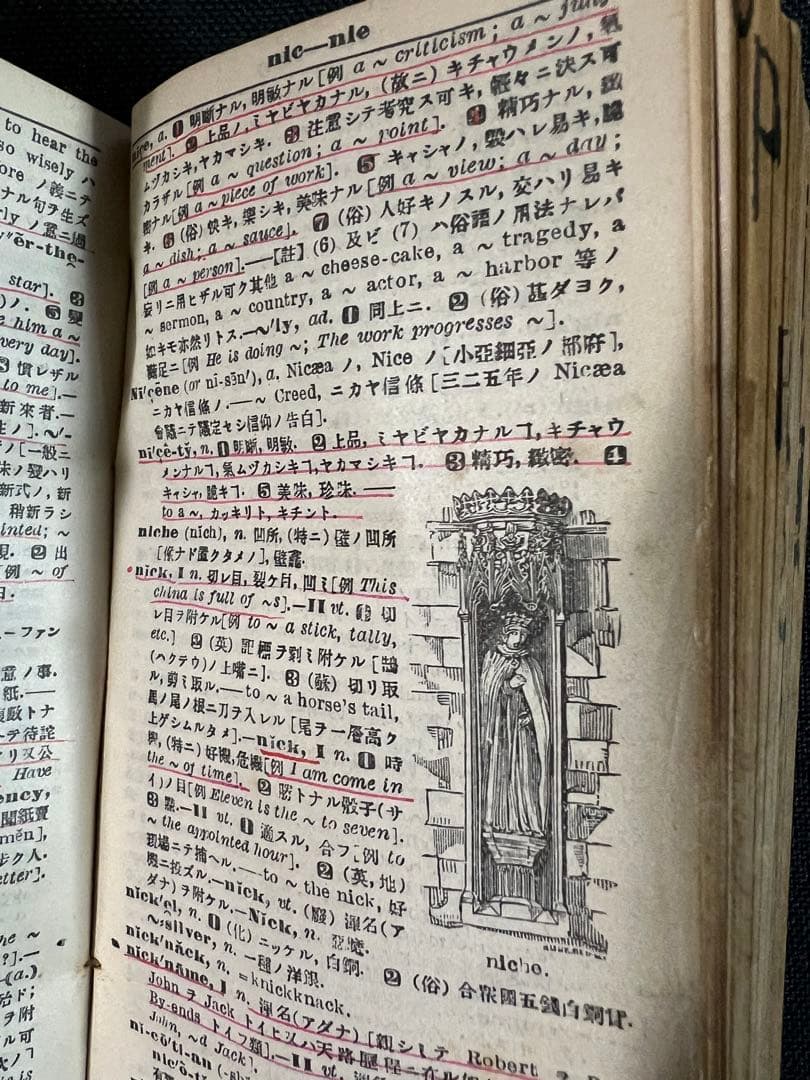 to hear the
so wisely ハ
ore ノ義ニテ
ナル句ヲ生ズ
rly ノ意ニ過
y″ēr-the-
star]. ❸
ノ. ❺
e him a ~
very day].
慣レザル
to me].—
新來者.—
ノ].—~′-
ニ
味ノ變ハリ
新式ノ, 新
稍新ラシ
inted; ~
現. ❷ 出
[例 ~ of
ーファン
意ノ事.
紙.—
テ待詫
Have
ency,
聞紙賣
mĕn],
歩ク人.
etter].
he ~
?].—
(a.)
殆ド;
ヲ附
ル可
nic—nie
nice, a. ❶ 明晰ナル, 明敏ナル [例 a ~ criticism; a ~
ment]. ❷ 上品ノ, ミヤビヤカナル, (故ニ) キチャウメンノ, 氣
ムヅカシキ, ヤカマシキ. ❸ 注意シテ考究ス可キ, 輕々ニ決ス可
カラザル [例 a ~ question; a ~ point]. ❹ 精巧ナル, 緻
密ナル [例 a ~ piece of work]. ❺ キャシャノ, 毀ハレ易キ, 脆
キ. ❻ (俗) 快キ, 樂シキ, 美味ナル [例 a ~ view; a ~ day;
a ~ dish; a ~ sauce]. ❼ (俗) 人好キノスル, 交ハリ易キ
[例 a ~ person].—【註】 (6) 及ビ (7) ハ俗語ノ用法ナレバ
妄リニ用ヒザル可ク其他 a ~ cheese-cake, a ~ tragedy, a
~ sermon, a ~ country, a ~ actor, a ~ harbor 等ノ
如キモ亦然リトス.—~′ly, ad. ❶ 同上ニ. ❷ (俗) 甚ダヨク,
満足ニ [例 He is doing ~; The work progresses ~].
Nī′çēne (or nī-sēn′), a. Nicæa ノ, Nice ノ [小亞細亞ノ都府],
ニカヤ信條ノ.—~ Creed, ニカヤ信條 [三二五年ノ Nicæa
會議ニテ議定セシ信仰ノ告白].
nī′çē-tȳ, n. ❶ 明晰, 明敏. ❷ 上品, ミヤビヤカナルヿ, キチャウ
メンナルヿ, 氣ムヅカシキヿ, ヤカマシキヿ. ❸ 精巧, 緻密. ❹
キャシャ, 脆キヿ. ❺ 美味, 珍味.—
to a ~, カッキリト, キチント.
niche (nĭch), n. 凹所, (特ニ) 壁ノ凹所
[像ナド置クタメノ], 壁龕.
nick, I n. 切レ目, 裂ケ目, 凹ミ [例 This
china is full of ~s].—II vt. ❶ 切
レ目ヲ附ケル [例 to ~ a stick, tally,
etc.] ❷ (英) 記標ヲ刻ミ附ケル [鵠
(ハクテウ) ノ上嘴ニ]. ❸ (蘇) 切リ取
ル, 剪ミ取ル.—to ~ a horse's tail,
馬ノ尾ノ根ニ刀ヲ入レル [尾ヲ一層高ク
上ゲシムルタメ].—nick, I n. ❶ 時
機, (特ニ) 好機, 危機 [例 I am come in
the ~ of time]. ❷ 勝トナル骰子 (サ
イ) ノ目 [例 Eleven is the ~ to seven].
❸ .—II vt. ❶ 適スル, 合フ [例 to
~ the appointed hour]. ❷ (英, 地)
現場ニテ捕ヘル.—to ~ the nick, 好
機ニ投ズル.—nick, vt. (廢) 渾名 (ア
ダナ) ヲ附ケル.—Nick, n. 惡魔.
nick′el, n. ❶ (化) ニッケル, 白銅. ❷ (俗) 合衆國五錢白銅貨.
~ silver, n. 一種ノ洋銀.
nick′năck, n. =knickknack.
nick′nāme, I n. 渾名 (アダナ) [親シミテ Robert
John ヲ Jack トイヒ又ハ天路歷程ニ在ル
By-ends トイフ類].—II vt.
John, ~d Jack].
nĭ-cō′tĭ-an
niche.